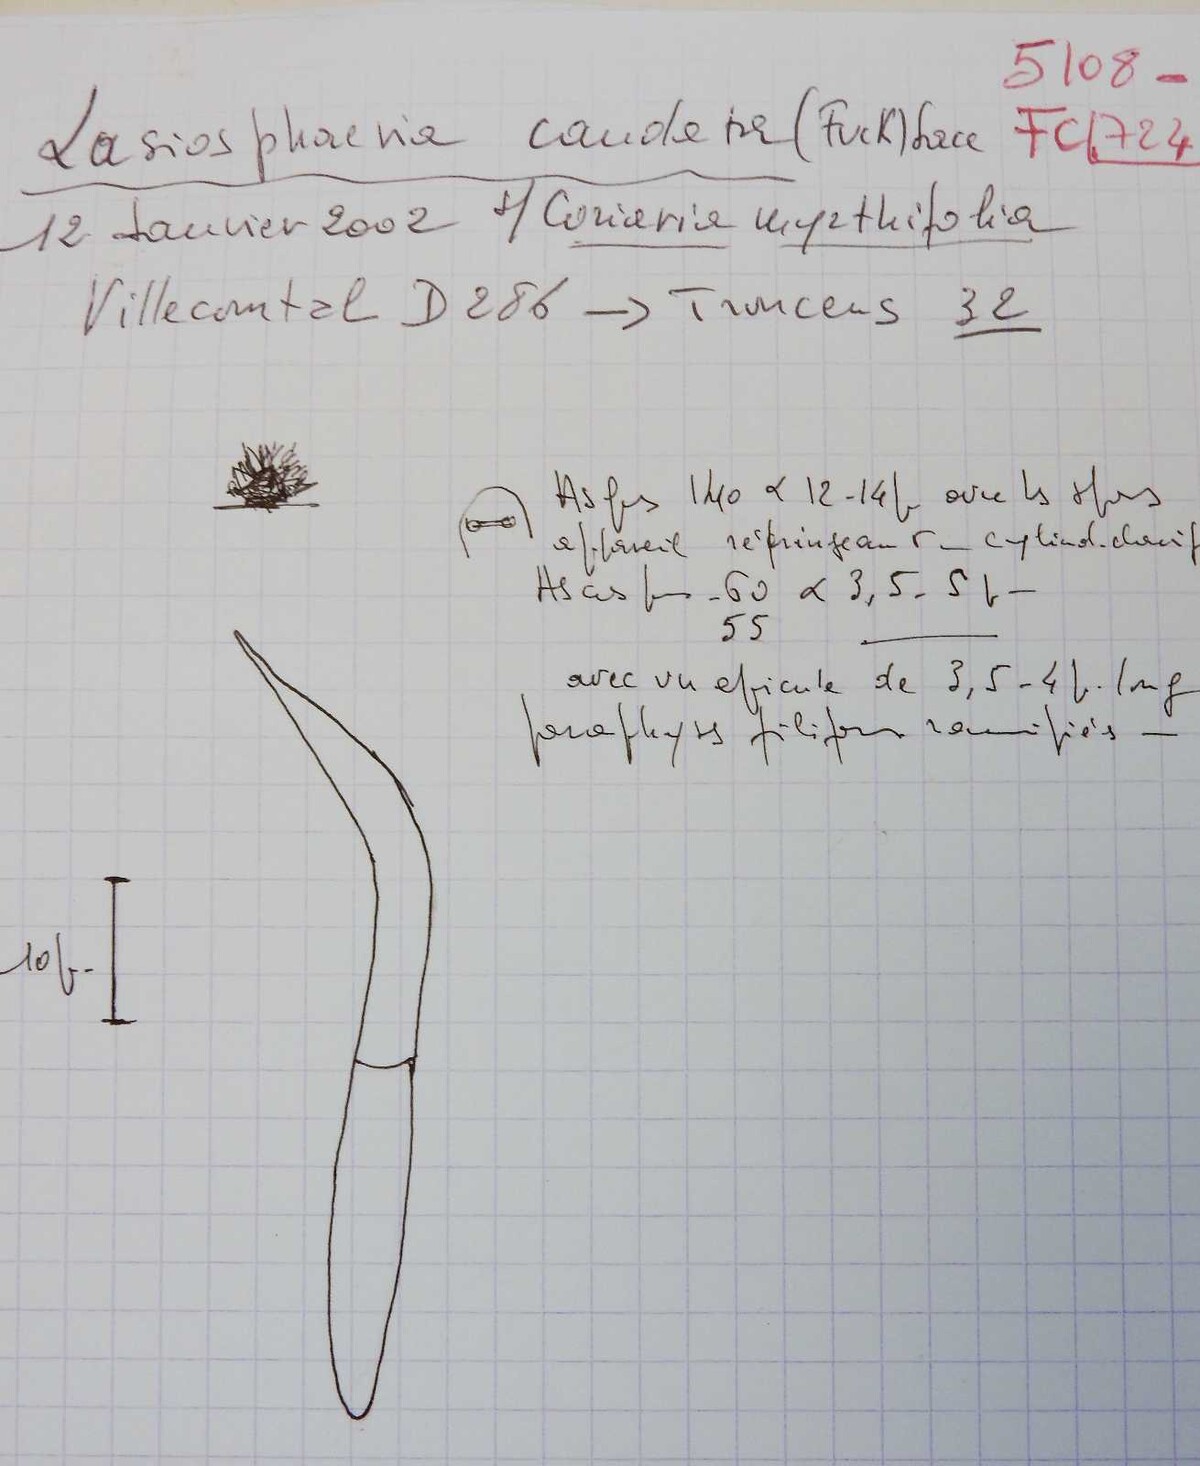 5108 -
Lasiosphaeria caudata (Fuck) Sacc FC1.724
12 Janvier 2002 s/ Coriaria myrthifolia
Villecomtal D 286 → Troncens 32
Asques 140 x 12-14µ avec les spores
appareil réfringeant - cylind. clavif
Ascosp -60 x 3,5-5µ -
55
avec un apicule de 3,5-4µ. long
paraphyses filiform ramifiés -
10µ-